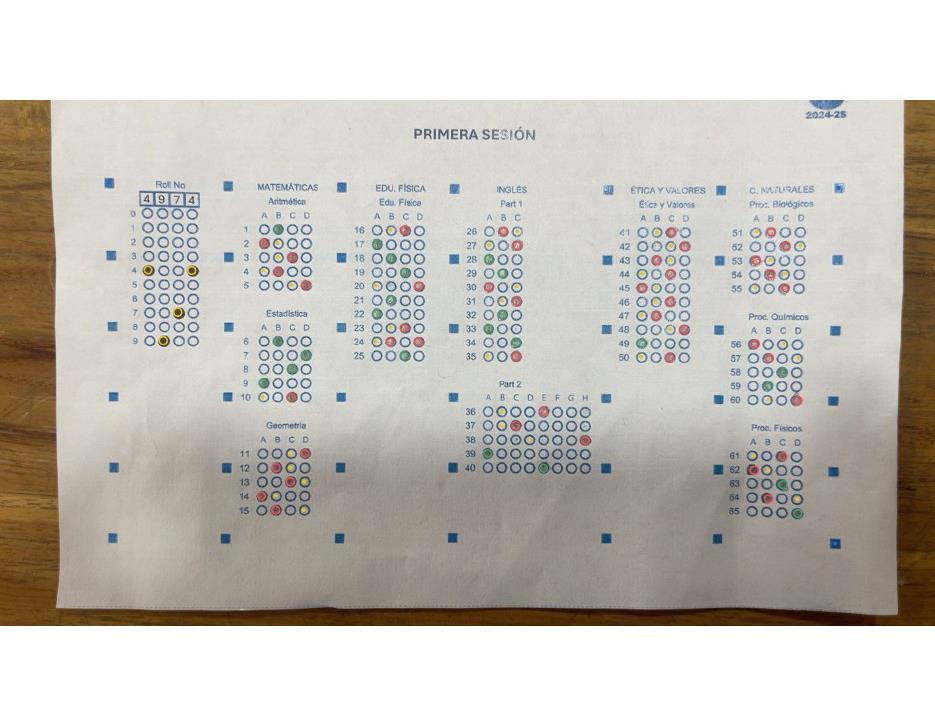 2024-25
PRIMERA SESIÓN
Roll No
4 9 7 4
0
1
2
3
4
5
6
7
8
9
MATEMÁTICAS
Aritmética
A B C D
1
2
3
4
5
Estadística
A B C D
6
7
8
9
10
Geometría
A B C D
11
12
13
14
15
EDU. FÍSICA
Edu. Física
A B C D
16
17
18
19
20
21
22
23
24
25
INGLÉS
Part 1
A B C
26
27
28
29
30
31
32
33
34
35
Part 2
A B C D E F G H
36
37
38
39
40
ÉTICA Y VALORES
Ética y Valores
A B C D
41
42
43
44
45
46
47
48
49
50
C. NATURALES
Proc. Biológicos
A B C D
51
52
53
54
55
Proc. Químicos
A B C D
56
57
58
59
60
Proc. Físicos
A B C D
61
62
63
64
65